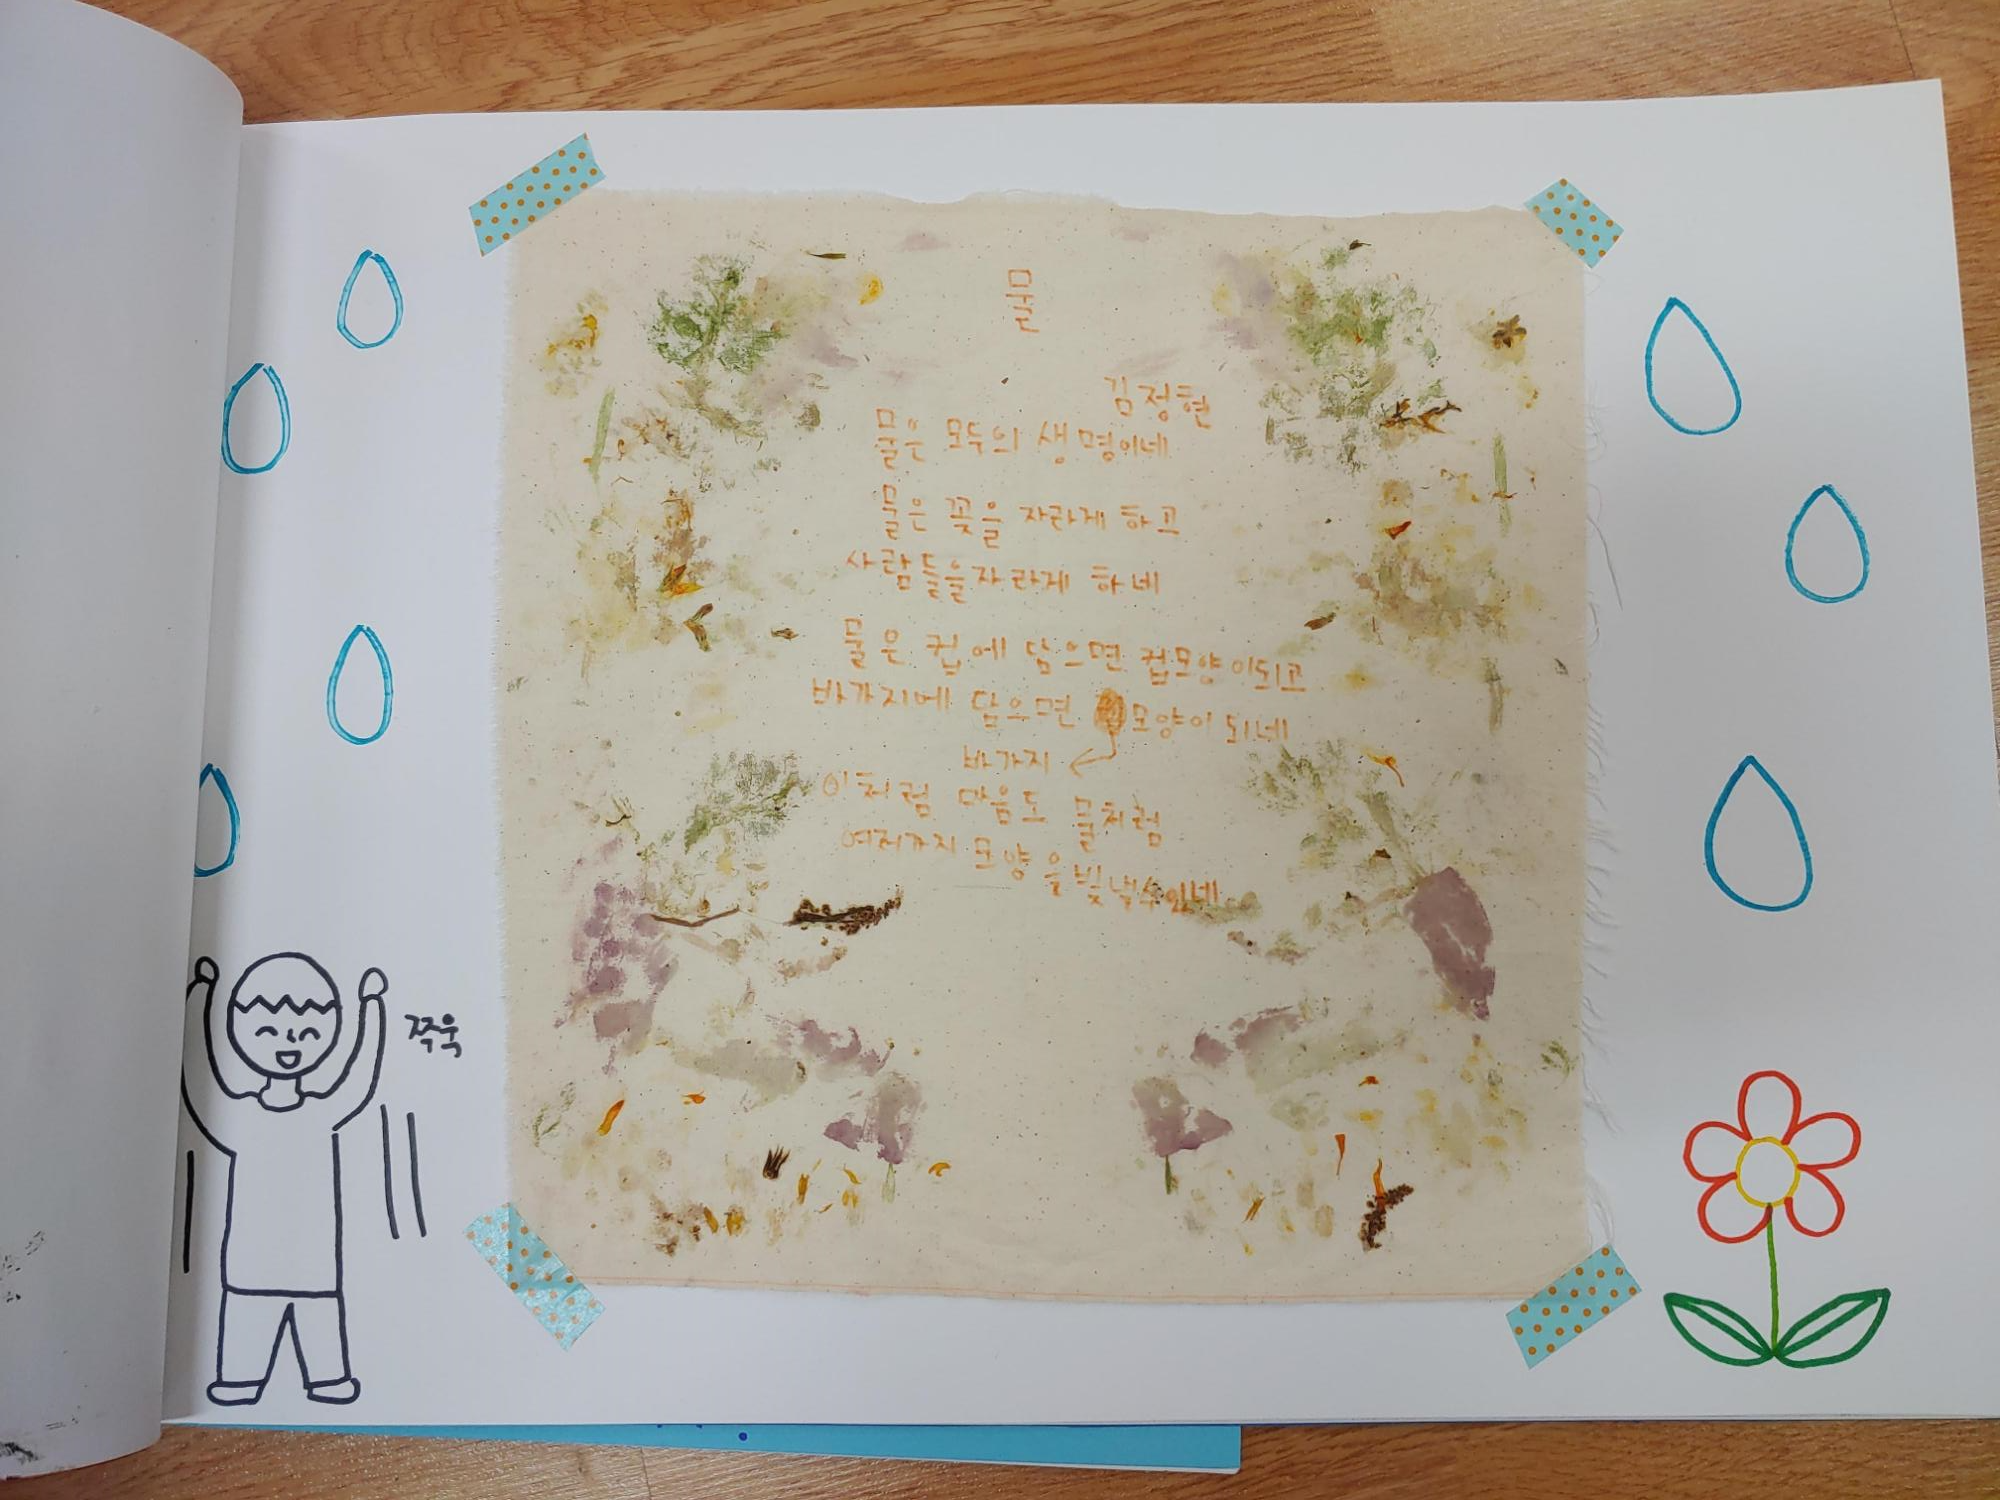 물
김정현
물은 모두의 생명이네
물은 꽃을 자라게 하고
사람들을자라게 하네
물은 컵에 담으면 컵모양이되고
바가지에 담으면 모양이 되네
바가지
이처럼 마음도 물처럼
여러가지 모양을빚낼수있네
쭈욱